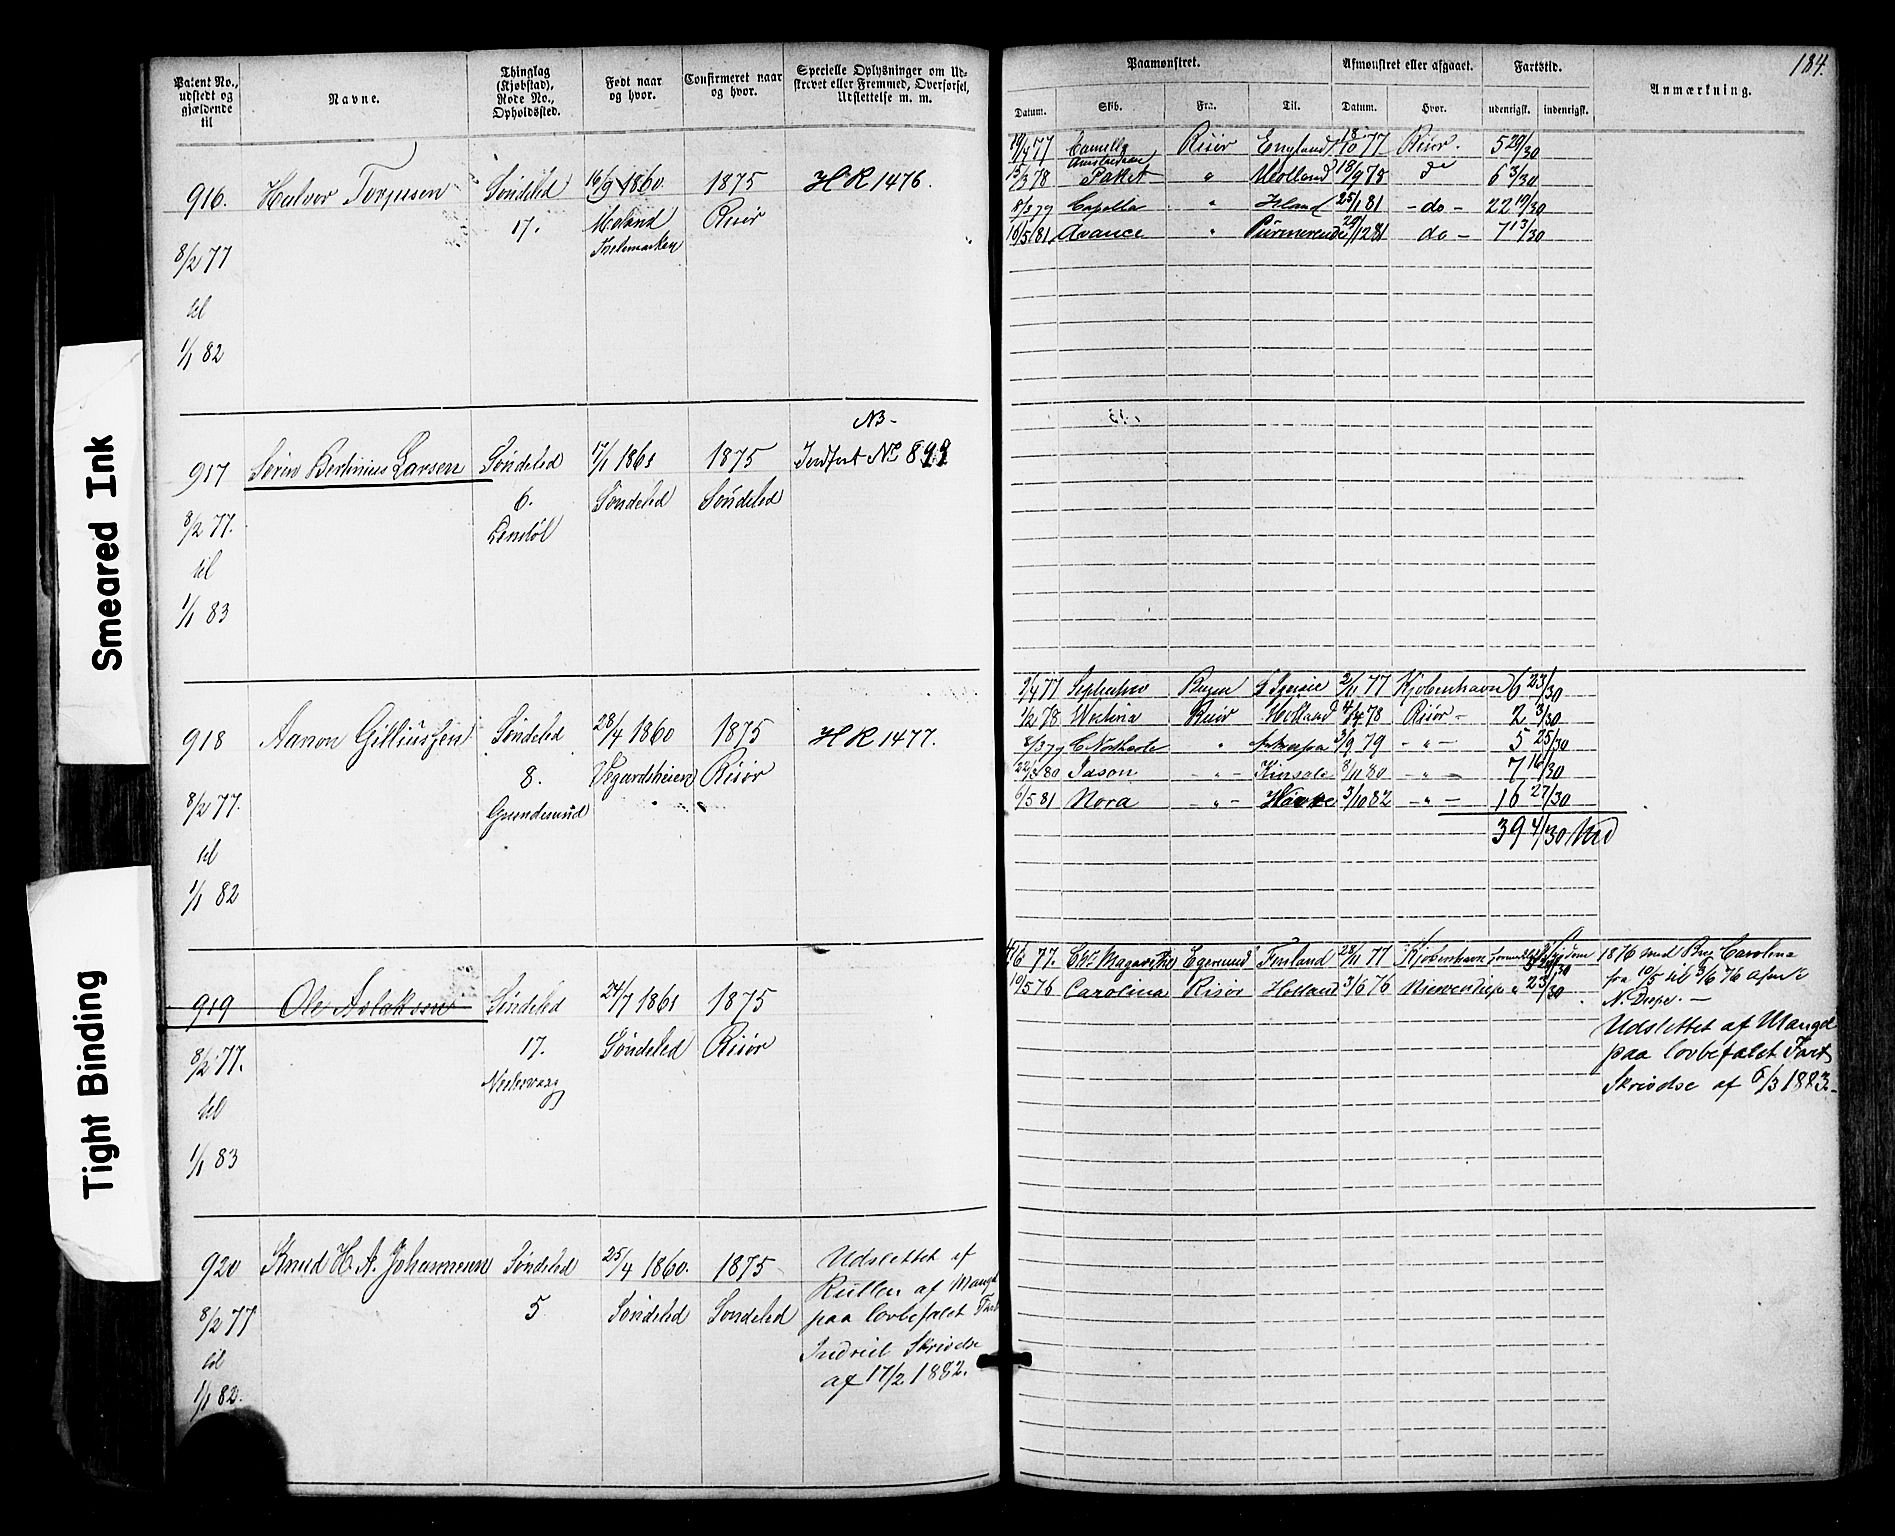 Smeared Ink
Tight Binding
184.
Patent No., udstedt og gjældende til
Navne.
Thinglag (Kjøbstad), Rode No., Opholdssted.
Født naar og hvor.
Confirmeret naar og hvor.
Specielle Oplysninger om Udskrevet eller Fremmed, Overførsel, Udslettelse m. m.
Paamønstret.
Afmønstret eller afgaaet.
Fartstid.
Anmærkning.
Datum.
Skib.
Fra.
Til.
Datum.
Hvor.
udenrigsk.
indenrigsk.
916. Halvor Torjusen Søndeled 16/9 1860. 1875 H R 1476.
17. Moland Risør
Thelemarken
8/2 77
til
1/1 82
19/4 77 Camilla Risør England 18/10 77 Risør. 5 29/30
15/3 78 Amsterdam Pakket " Holland 18/9 78 do 6 3/30
8/3 79 Capella " Irland 25/1 81 - do - 22 19/30
16/5 81 Avance " Purmerende 29/12 81 do - 7 13/30
NB-
917 Søren Bertinius Larsen Søndeled 17/1 1861 1875 Indført No 899
6. Søndeled Søndeled
8/2 77.
til
1/1 83
918 Aanon Gilliussen Søndeled 28/4 1860 1875 H R 1477.
8. Vegardsheien Risør
8/2 77. Gumdesund
til
1/1 82
2/11 77 Kjøbenhavn 6 23/30
1/2 78 Risør Holland 4/4 78 Risør - 2 3/30
8/3 79 " 3/9 79 - " - 5 25/30
22/3 80 Jason - " - Kinsale 8/11 80 - " - 7 16/30
6/5 81 Nora - " - Havre 3/10 82 - " - 16 27/30
39 4/30 Md
919 Ole Aslaksen Søndeled 24/7 1861 1875
17. Søndeled Risør
8/2 77.
til
1/1 83
77. Chr Magarethe Egersund Finland 28/11 77 Kjøbenhavn
10/5 76 Carolina Risør Holland 3/6 76 Niewendiep " 23/30
1876 med Brig Carolina
fra 10/5 til 3/6 76 afm. i
N. Diepe. -
Udslettet af Mangel
paa lovbefalet Fart
Skrivelse af 6/3 1883. -
920 Knud H. A. Johannesen Søndeled 25/4 1860. 1875 Udslettet af
5 Søndeled Søndeled Rullen af Mangel
8/2 77 paa lovbefalet Fart
til Indeciel Skrivelse
1/1 82. af 17/2 1882.